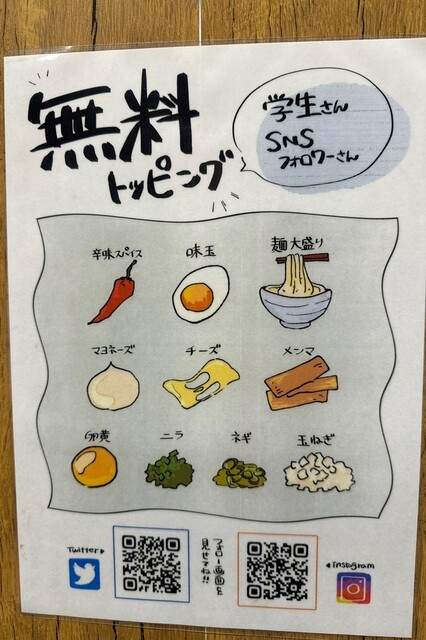 無料
トッピング
学生さん
SNS
フォロワーさん
辛味スパイス
味玉
麺大盛り
マヨネーズ
チーズ
メンマ
卵黄
ニラ
ネギ
玉ねぎ
Twitter
フォロー画面を
見せてね!!
Instagram